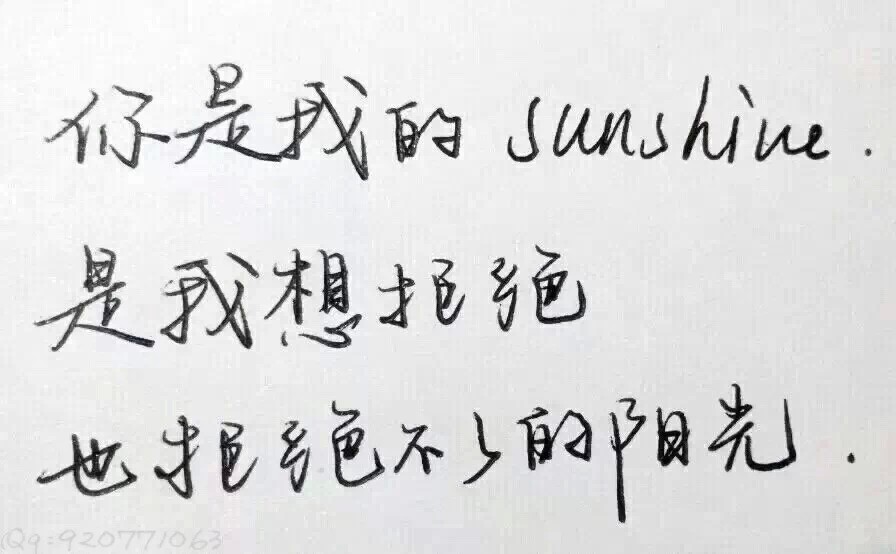 你是我的 sunshine.
是我想拒绝
也拒绝不了的阳光.
Qq:920771063